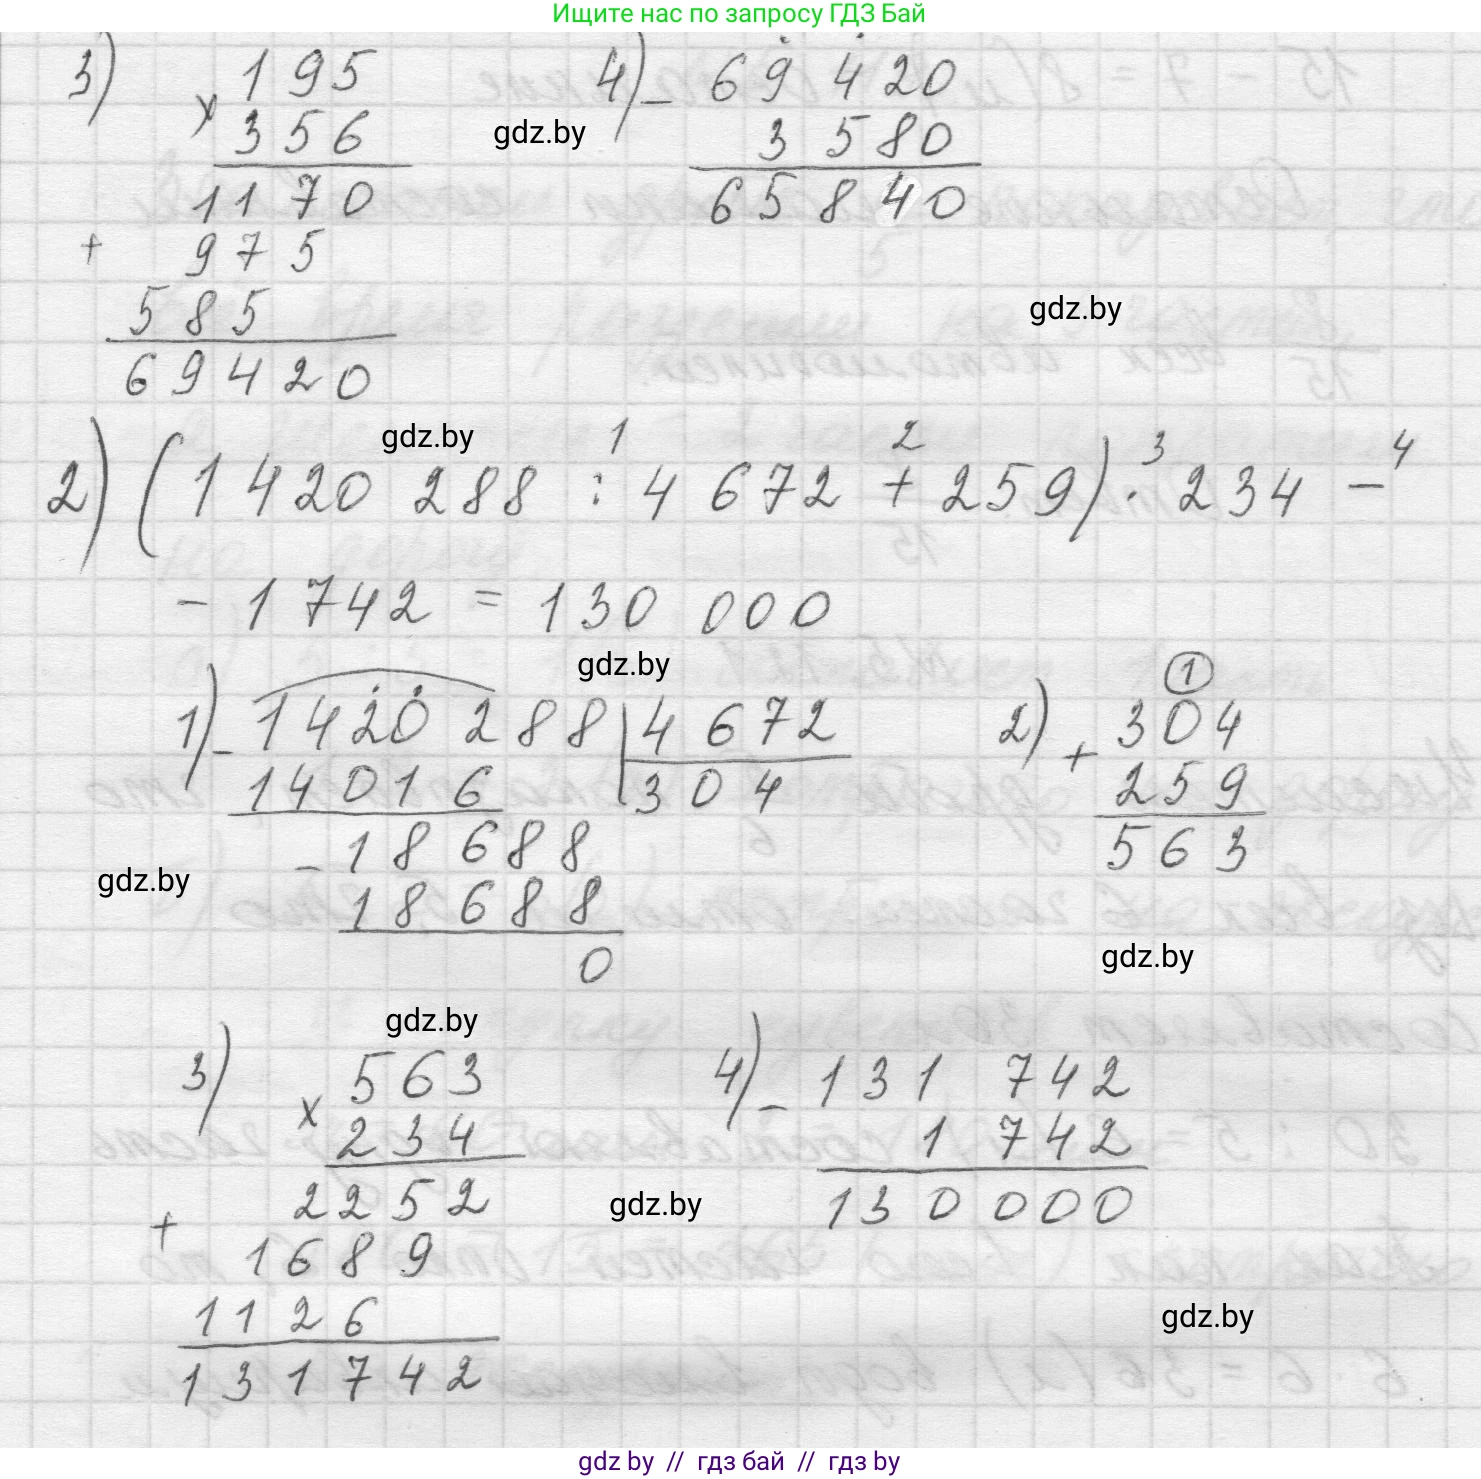 Ищите нас по запросу ГДЗ Бай
3) × 195
356
1170
+ 975
585
69420
4) – 69420
3580
65840
gdz.by
gdz.by
gdz.by
1 2 3 4
2) (1420 288 : 4 672 + 259) · 234 –
– 1742 = 130 000
gdz.by
1) – 1420 288 | 4 672
14016 304
– 18688
18688
0
2) ①
+ 304
259
563
gdz.by
gdz.by
gdz.by
3) × 563
234
2252
+ 1689
1126
131742
4) – 131 742
1 742
130 000
gdz.by
gdz.by
gdz by // гдз бай // гдз by